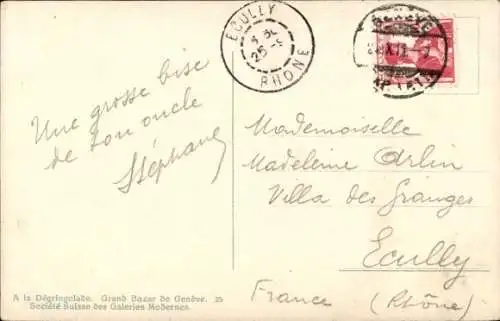 ECULLY
RHONE
Une grosse bise
de ton oncle
Stéphane
Mademoiselle
Madeleine Arlin
Villa des Granges
Ecully
France (Rhône)
A la Dégringolade. Grand Bazar de Genève. 25
Société Suisse des Galeries Modernes.